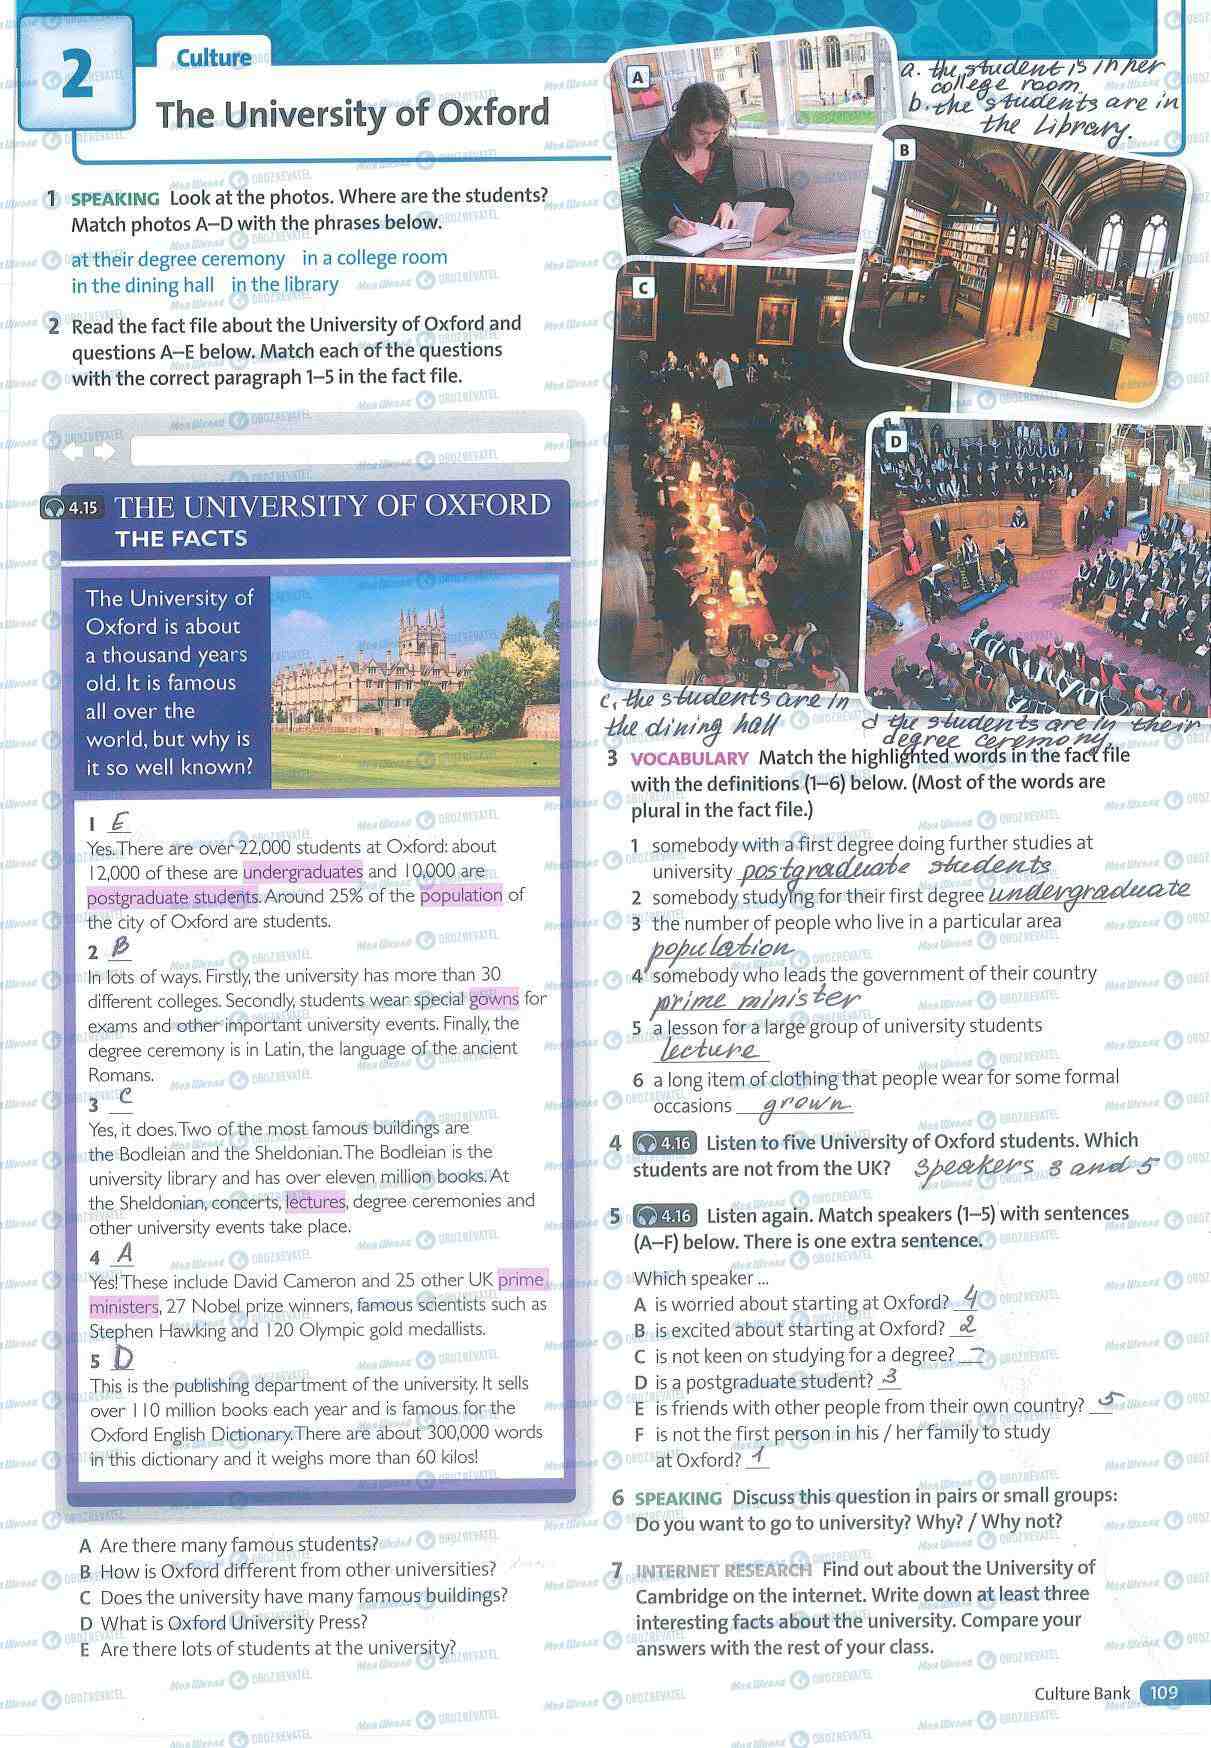 2
Culture
The University of Oxford
A
a. the student is in her
college room.
b. the students are in
the Library.
B
1 SPEAKING Look at the photos. Where are the students?
Match photos A–D with the phrases below.
at their degree ceremony in a college room
in the dining hall in the library
2 Read the fact file about the University of Oxford and
questions A–E below. Match each of the questions
with the correct paragraph 1–5 in the fact file.
C
D
4.15 THE UNIVERSITY OF OXFORD
THE FACTS
The University of
Oxford is about
a thousand years
old. It is famous
all over the
world, but why is
it so well known?
1 E
Yes. There are over 22,000 students at Oxford: about
12,000 of these are undergraduates and 10,000 are
postgraduate students. Around 25% of the population of
the city of Oxford are students.
2 B
In lots of ways. Firstly, the university has more than 30
different colleges. Secondly, students wear special gowns for
exams and other important university events. Finally, the
degree ceremony is in Latin, the language of the ancient
Romans.
3 C
Yes, it does. Two of the most famous buildings are
the Bodleian and the Sheldonian. The Bodleian is the
university library and has over eleven million books. At
the Sheldonian, concerts, lectures, degree ceremonies and
other university events take place.
4 A
Yes! These include David Cameron and 25 other UK prime
ministers, 27 Nobel prize winners, famous scientists such as
Stephen Hawking and 120 Olympic gold medallists.
5 D
This is the publishing department of the university. It sells
over 110 million books each year and is famous for the
Oxford English Dictionary. There are about 300,000 words
in this dictionary and it weighs more than 60 kilos!
A Are there many famous students?
B How is Oxford different from other universities?
C Does the university have many famous buildings?
D What is Oxford University Press?
E Are there lots of students at the university?
c. the students are in
the dining hall
d the students are in their
degree ceremony.
3 VOCABULARY Match the highlighted words in the fact file
with the definitions (1–6) below. (Most of the words are
plural in the fact file.)
1 somebody with a first degree doing further studies at
university postgraduate students
2 somebody studying for their first degree undergraduate
3 the number of people who live in a particular area
population
4 somebody who leads the government of their country
prime minister
5 a lesson for a large group of university students
lecture
6 a long item of clothing that people wear for some formal
occasions grown
4 4.16 Listen to five University of Oxford students. Which
students are not from the UK? speakers 3 and 5
5 4.16 Listen again. Match speakers (1–5) with sentences
(A–F) below. There is one extra sentence.
Which speaker ...
A is worried about starting at Oxford? 4
B is excited about starting at Oxford? 2
C is not keen on studying for a degree? –
D is a postgraduate student? 3
E is friends with other people from their own country? 5
F is not the first person in his / her family to study
at Oxford? 1
6 SPEAKING Discuss this question in pairs or small groups:
Do you want to go to university? Why? / Why not?
7 INTERNET RESEARCH Find out about the University of
Cambridge on the internet. Write down at least three
interesting facts about the university. Compare your
answers with the rest of your class.
Culture Bank 109
Моя Школа OBOZREVATEL